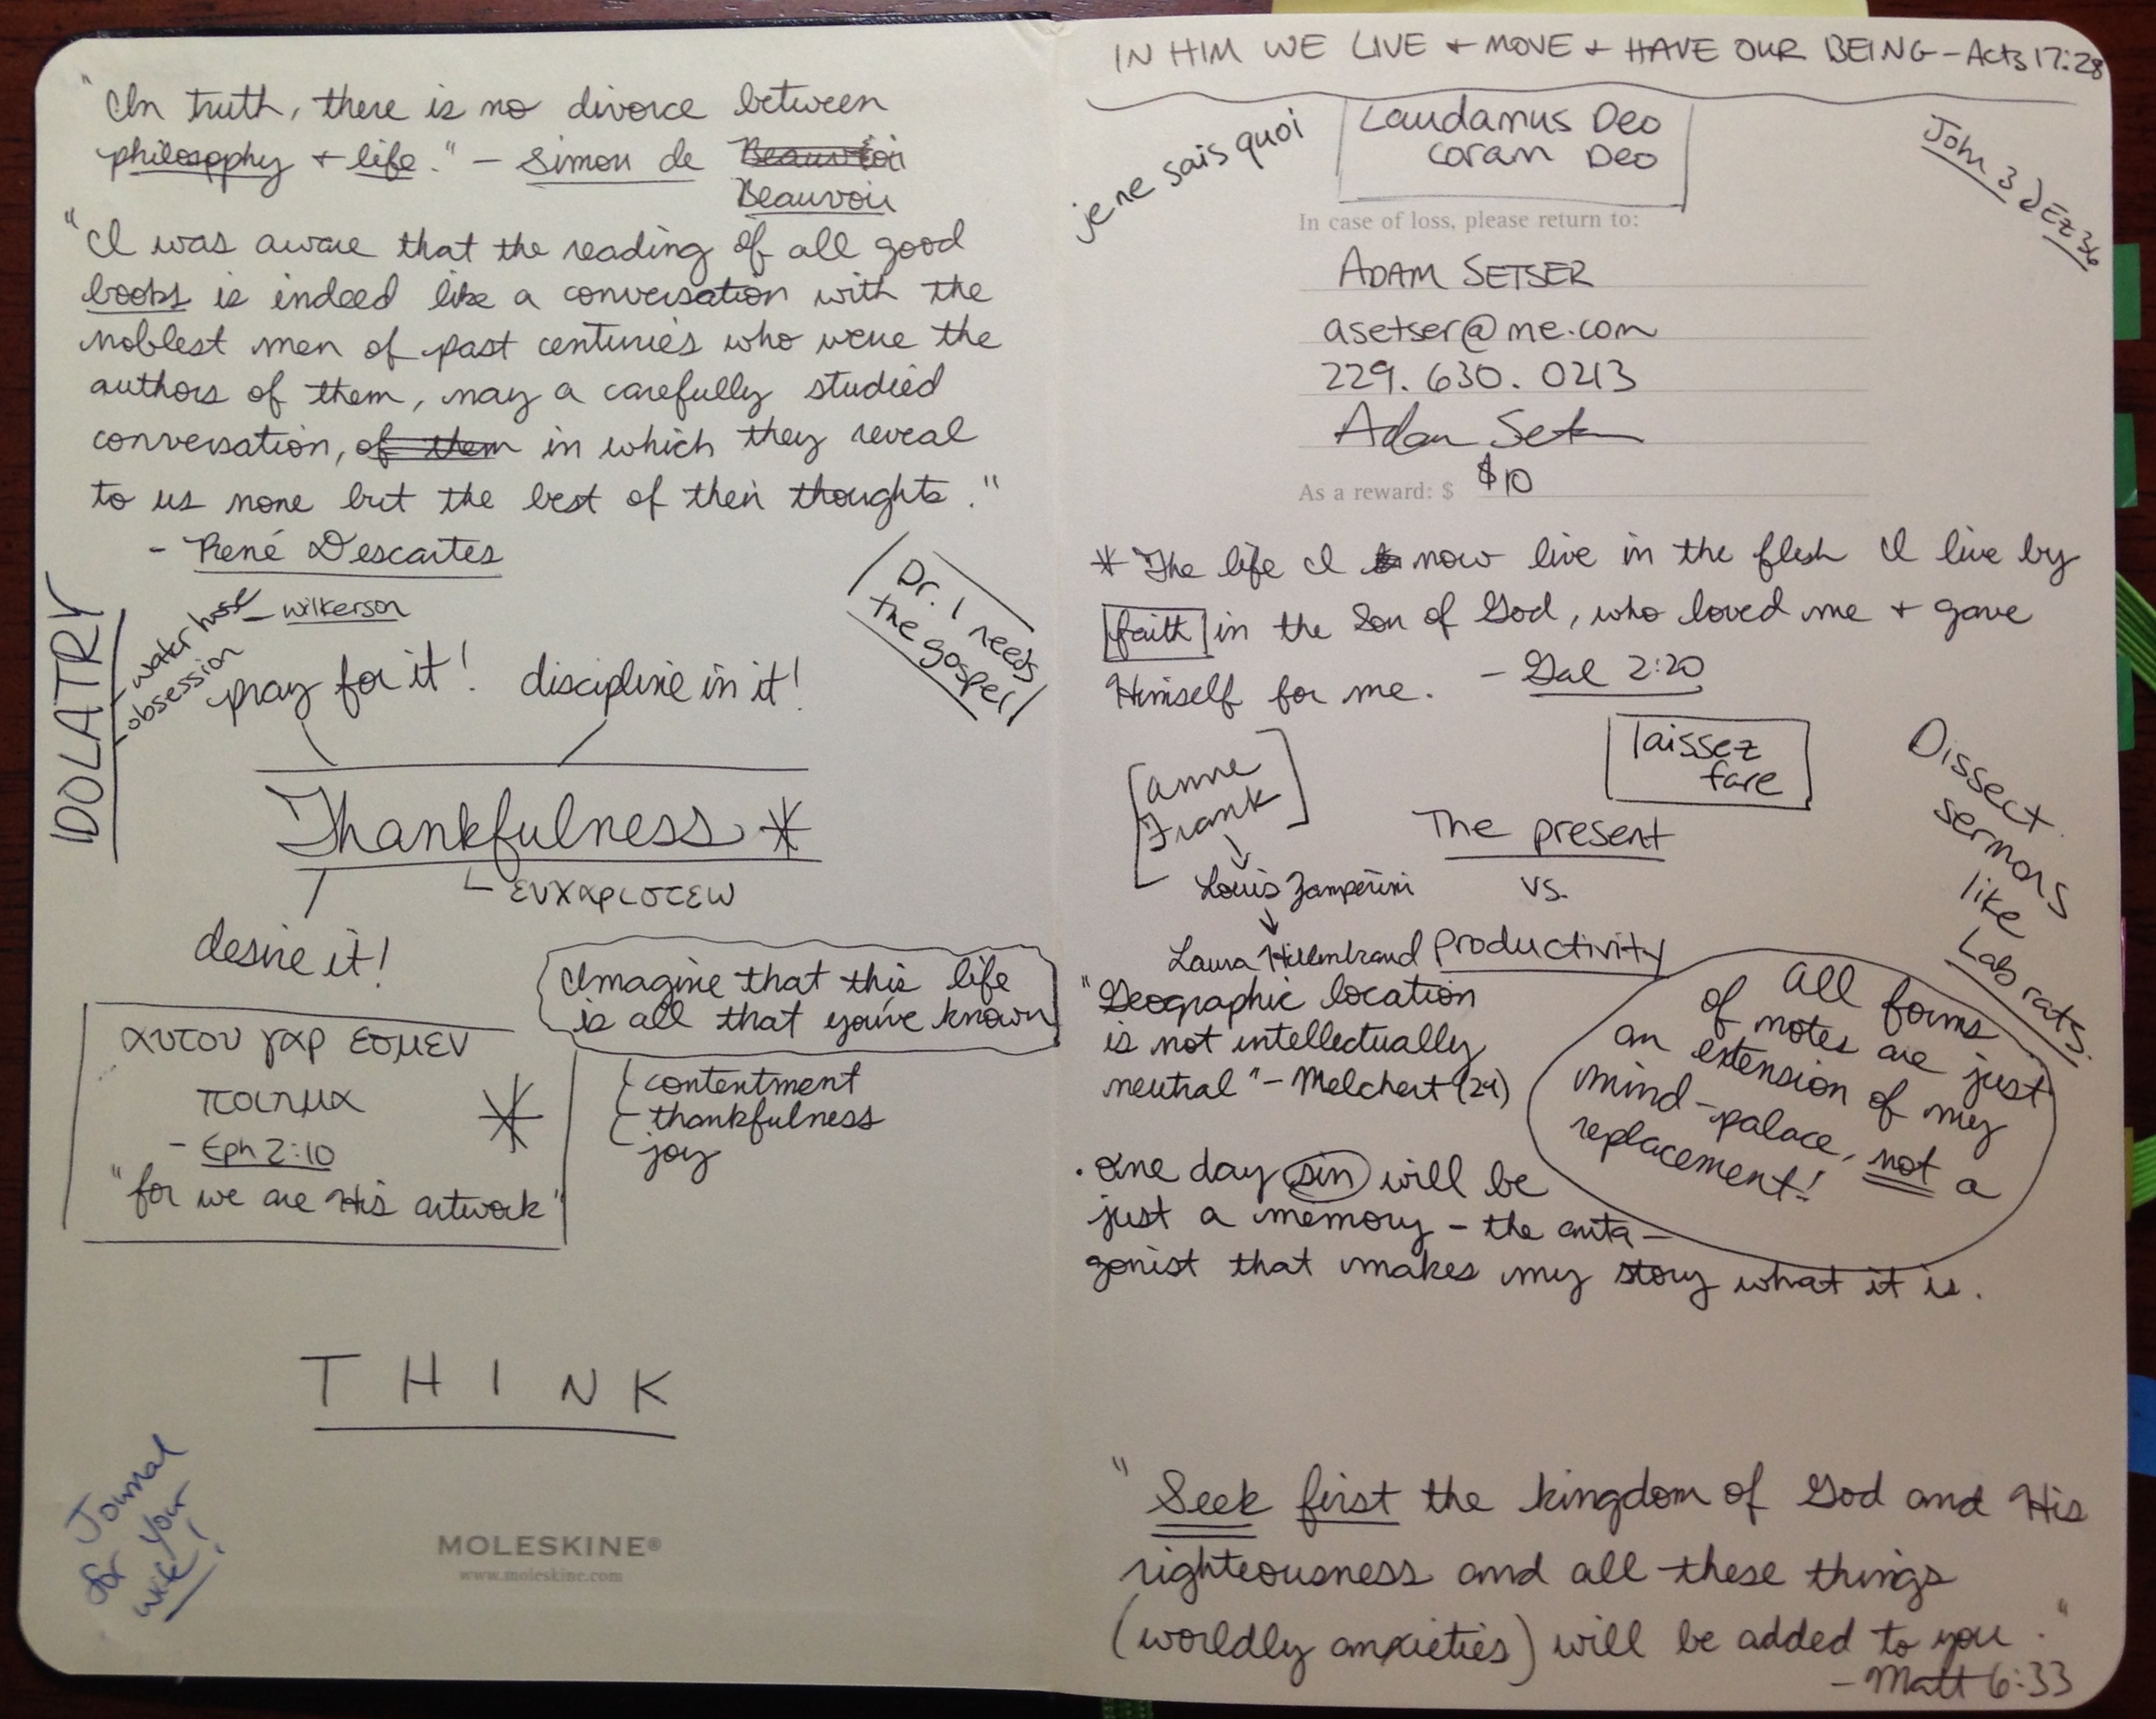 "In truth, there is no divorce between
philosophy + life." – Simon de Beauvoir
Beauvoir
"I was aware that the reading of all good
books is indeed like a conversation with the
noblest men of past centuries who were the
authors of them, nay a carefully studied
conversation, of them in which they reveal
to us none but the best of their thoughts."
- René Descartes
IDOLATRY
- water hose - wilkerson
- obsession
Dr. 1 needs
the gospel
pray for it! discipline in it!
Thankfulness *
ευχαριστεω
desire it!
Imagine that this life
is all that you've known
αυτου γαρ εσμεν
ποιημα
- Eph 2:10
"for we are His artwork"
*
contentment
thankfulness
joy
THINK
Journal
for your
wife!
MOLESKINE®
www.moleskine.com
IN HIM WE LIVE + MOVE + HAVE OUR BEING – Acts 17:28
je ne sais quoi
Laudamus Deo
coram Deo
John 3
Ez 36
In case of loss, please return to:
ADAM SETSER
asetser@me.com
229. 630. 0213
Adam Setser
As a reward: $ $10
* The life I now live in the flesh I live by
faith in the Son of God, who loved me + gave
Himself for me. – Gal 2:20
[Anne
Frank]
Louis Zamperini
Laura Hillenbrand
laissez
fare
The present
vs.
productivity
Dissect
sermons
like
Lab rats.
"Geographic location
is not intellectually
neutral" – Melchert (29)
All forms
of notes are just
an extension of my
mind-palace, not a
replacement!
· One day sin will be
just a memory – the anta-
gonist that makes my story what it is.
"Seek first the kingdom of God and His
righteousness and all these things
(worldly anxieties) will be added to you."
– Matt 6:33